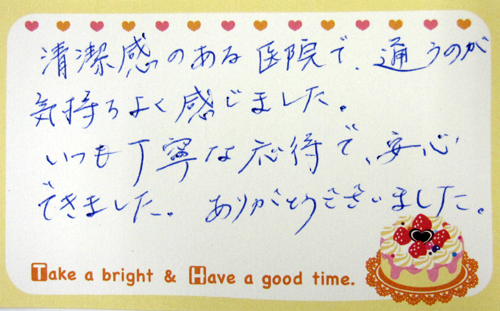 清潔感のある医院で、通うのが
気持ちよく感じました。
いつも丁寧な応待で、安心
できました。ありがとうございました。
Take a bright & Have a good time.